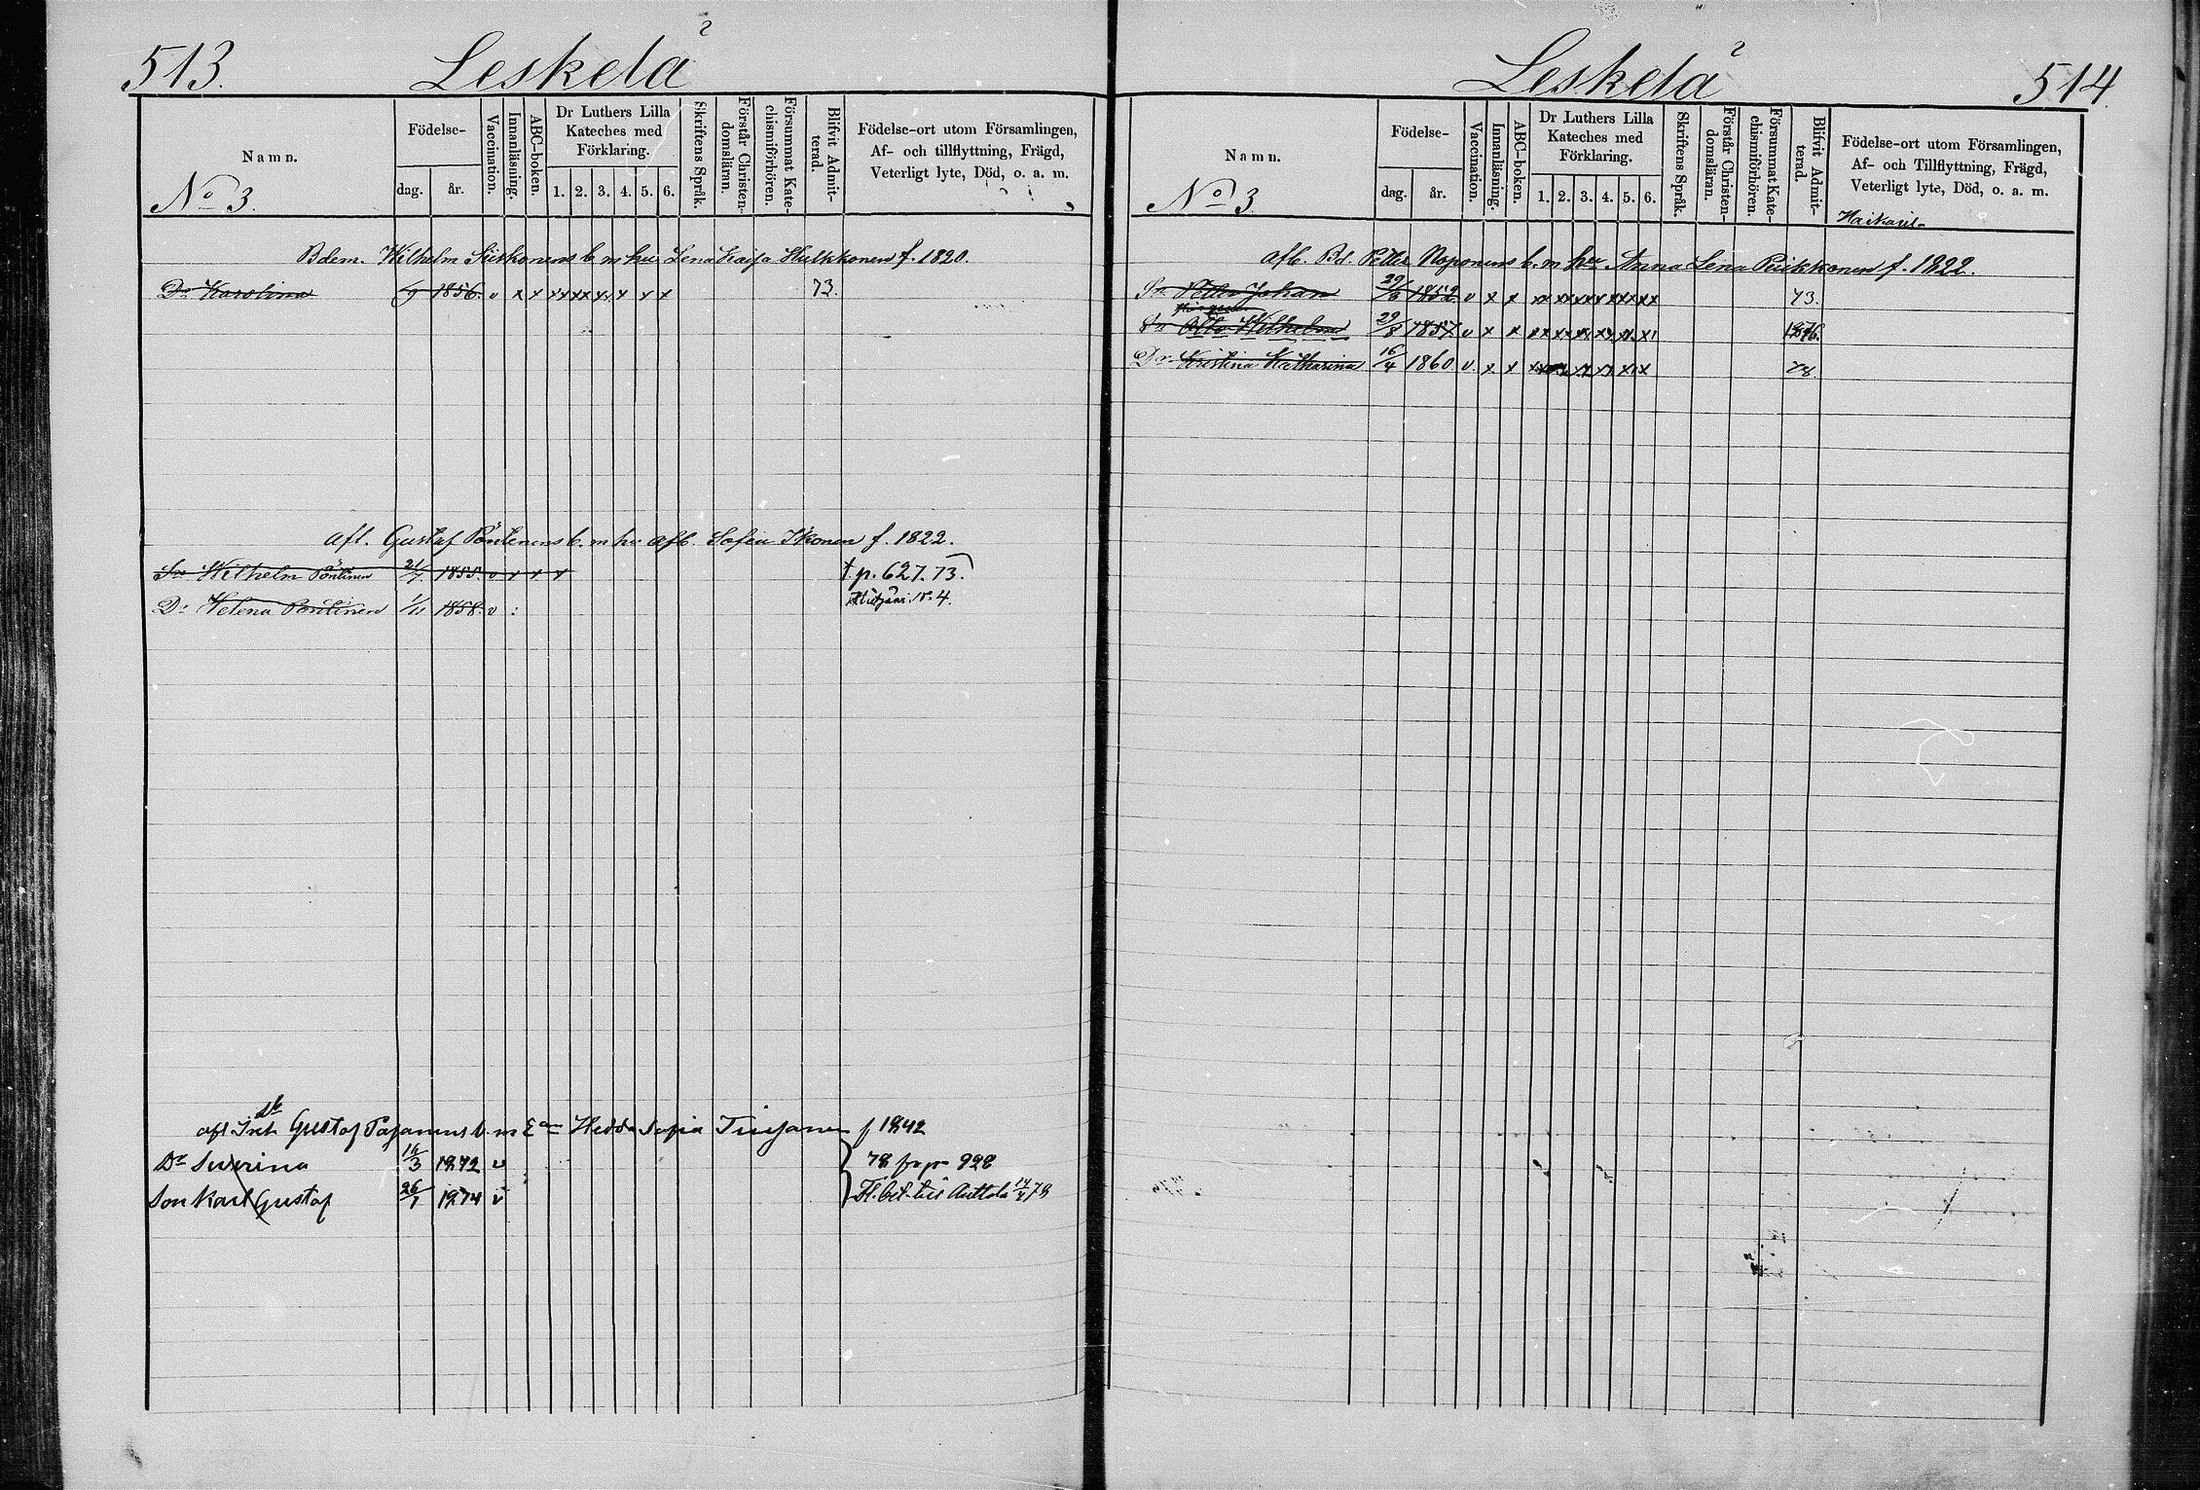 513.
Leskelä
Namn.
Födelse-
dag.
år.
Vaccination.
Innanläsning.
ABC-boken.
Dr Luthers Lilla
Kateches med
Förklaring.
1. 2. 3. 4. 5. 6.
Skriftens Språk.
Förstår Christen-
domsläran.
Försummat Kate-
chismiförhören.
Blifvit Admit-
terad.
Födelse-ort utom Församlingen,
Af- och tillflyttning, Frägd,
Veterligt lyte, Död, o. a. m.
No 3.
Bdem. Wilhelm b. m. hu Lena Kaisa Hulkkonen f. 1820.
Dr Karolina 9 1856. v x x xx xx x x x x 73.
afl. Gustaf Pöntinens b. m. hu afl. Sofia Ikonen f. 1822.
Sn Wilhelm Pöntinen 21/7 1855. v x x x † p. 627. 73.
Dr Helena Pöntinen 1/11 1858. v : 4.
afl Gustaf Pajanens b. m. Ean Hedda Sofia f 1842
Dr Severina 16/3 1872 v 78 fr p 928
Son Karl Gustaf 26/1 1874 v Fl. bet. till Anttola 78
514.
Leskelä
Namn.
Födelse-
dag.
år.
Vaccination.
Innanläsning.
ABC-boken.
Dr Luthers Lilla
Kateches med
Förklaring.
1. 2. 3. 4. 5. 6.
Skriftens Språk.
Förstår Christen-
domsläran.
Försummat Kate-
chismiförhören.
Blifvit Admit-
terad.
Födelse-ort utom Församlingen,
Af- och Tillflyttning, Frägd,
Veterligt lyte, Död, o. a. m.
No 3
afl. Bd. Petter Noponens b. m. hu Anna Lena Pulkkonen f. 1822.
Sn Petter Johan 1852 v x x xx xx xx x xx xx 73.
Sn Otto Wilhelm 29/8 1857. v x x xx xx x x x x 1876.
Dr Kristina Katharina 16/4 1860 v. x x 78